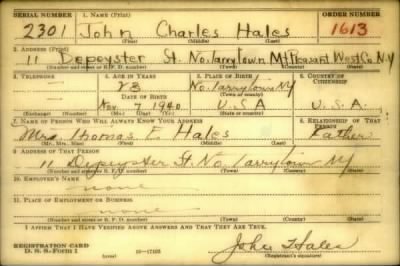 SERIAL NUMBER 1. NAME (Print) ORDER NUMBER
2301 John Charles Hales 1613
(First) (Middle) (Last)
2. ADDRESS (Print)
11 Depeyster St. No. Tarrytown Mt Pleasant West Co. N.Y.
(Number and street or R. F. D. number) (Town) (County) (State)
3. TELEPHONE 4. AGE IN YEARS 5. PLACE OF BIRTH 6. COUNTRY OF CITIZENSHIP
23 No. Tarrytown NY
DATE OF BIRTH (Town or county)
Nov. 7 1940 U.S.A U.S.A.
(Exchange) (Number) (Mo.) (Day) (Yr.) (State or country)
7. NAME OF PERSON WHO WILL ALWAYS KNOW YOUR ADDRESS 8. RELATIONSHIP OF THAT PERSON
Mrs Thomas E. Hales Father
(Mr., Mrs., Miss) (First) (Middle) (Last)
9. ADDRESS OF THAT PERSON
11 Depeyster St. No. Tarrytown NY
(Number and street or R. F. D. number) (Town) (County) (State)
10. EMPLOYER'S NAME
none
11. PLACE OF EMPLOYMENT OR BUSINESS
none
(Number and street or R. F. D. number) (Town) (County) (State)
I AFFIRM THAT I HAVE VERIFIED ABOVE ANSWERS AND THAT THEY ARE TRUE.
REGISTRATION CARD
D. S. S. Form 1 (over) 16—17105 John Hales
(Registrant's signature)